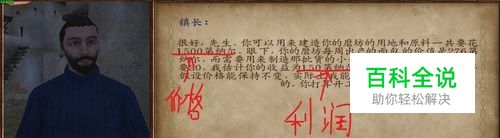 镇长：
很好，先生。你可以用来建造你的磨坊的用地和原料一共要花
1500第纳尔。眼下，你的磨坊每周出产的面包的价值是276第
纳尔，而需要用来制造那批货的小
要30。我估计你的收益为150第纳
假设价格能保持不变，实际
的，你打算开工
价格
利润
百科全说
助你轻松解决